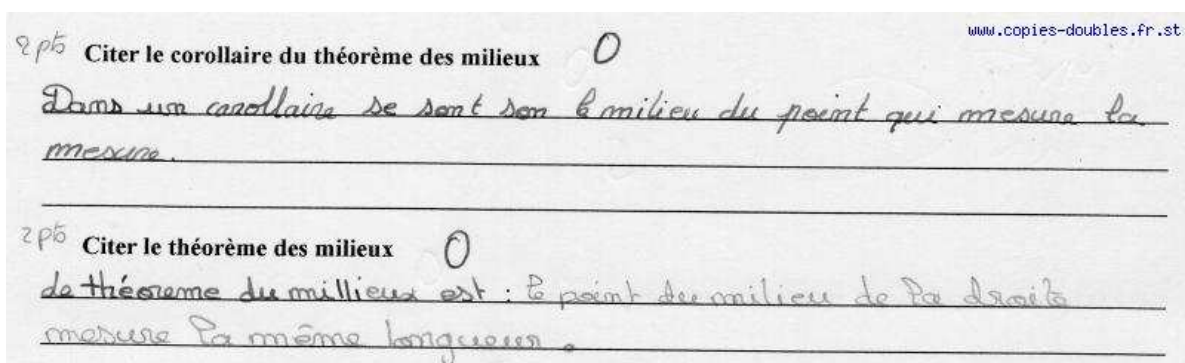 www.copies-doubles.fr.st
2 pts Citer le corollaire du théorème des milieux 0
Dans un carollaire se sont son le milieu du point qui mesure la
mesure.
2 pts Citer le théorème des milieux 0
le théoreme du millieux est : le point du milieu de la droite
mesure la même longueur.